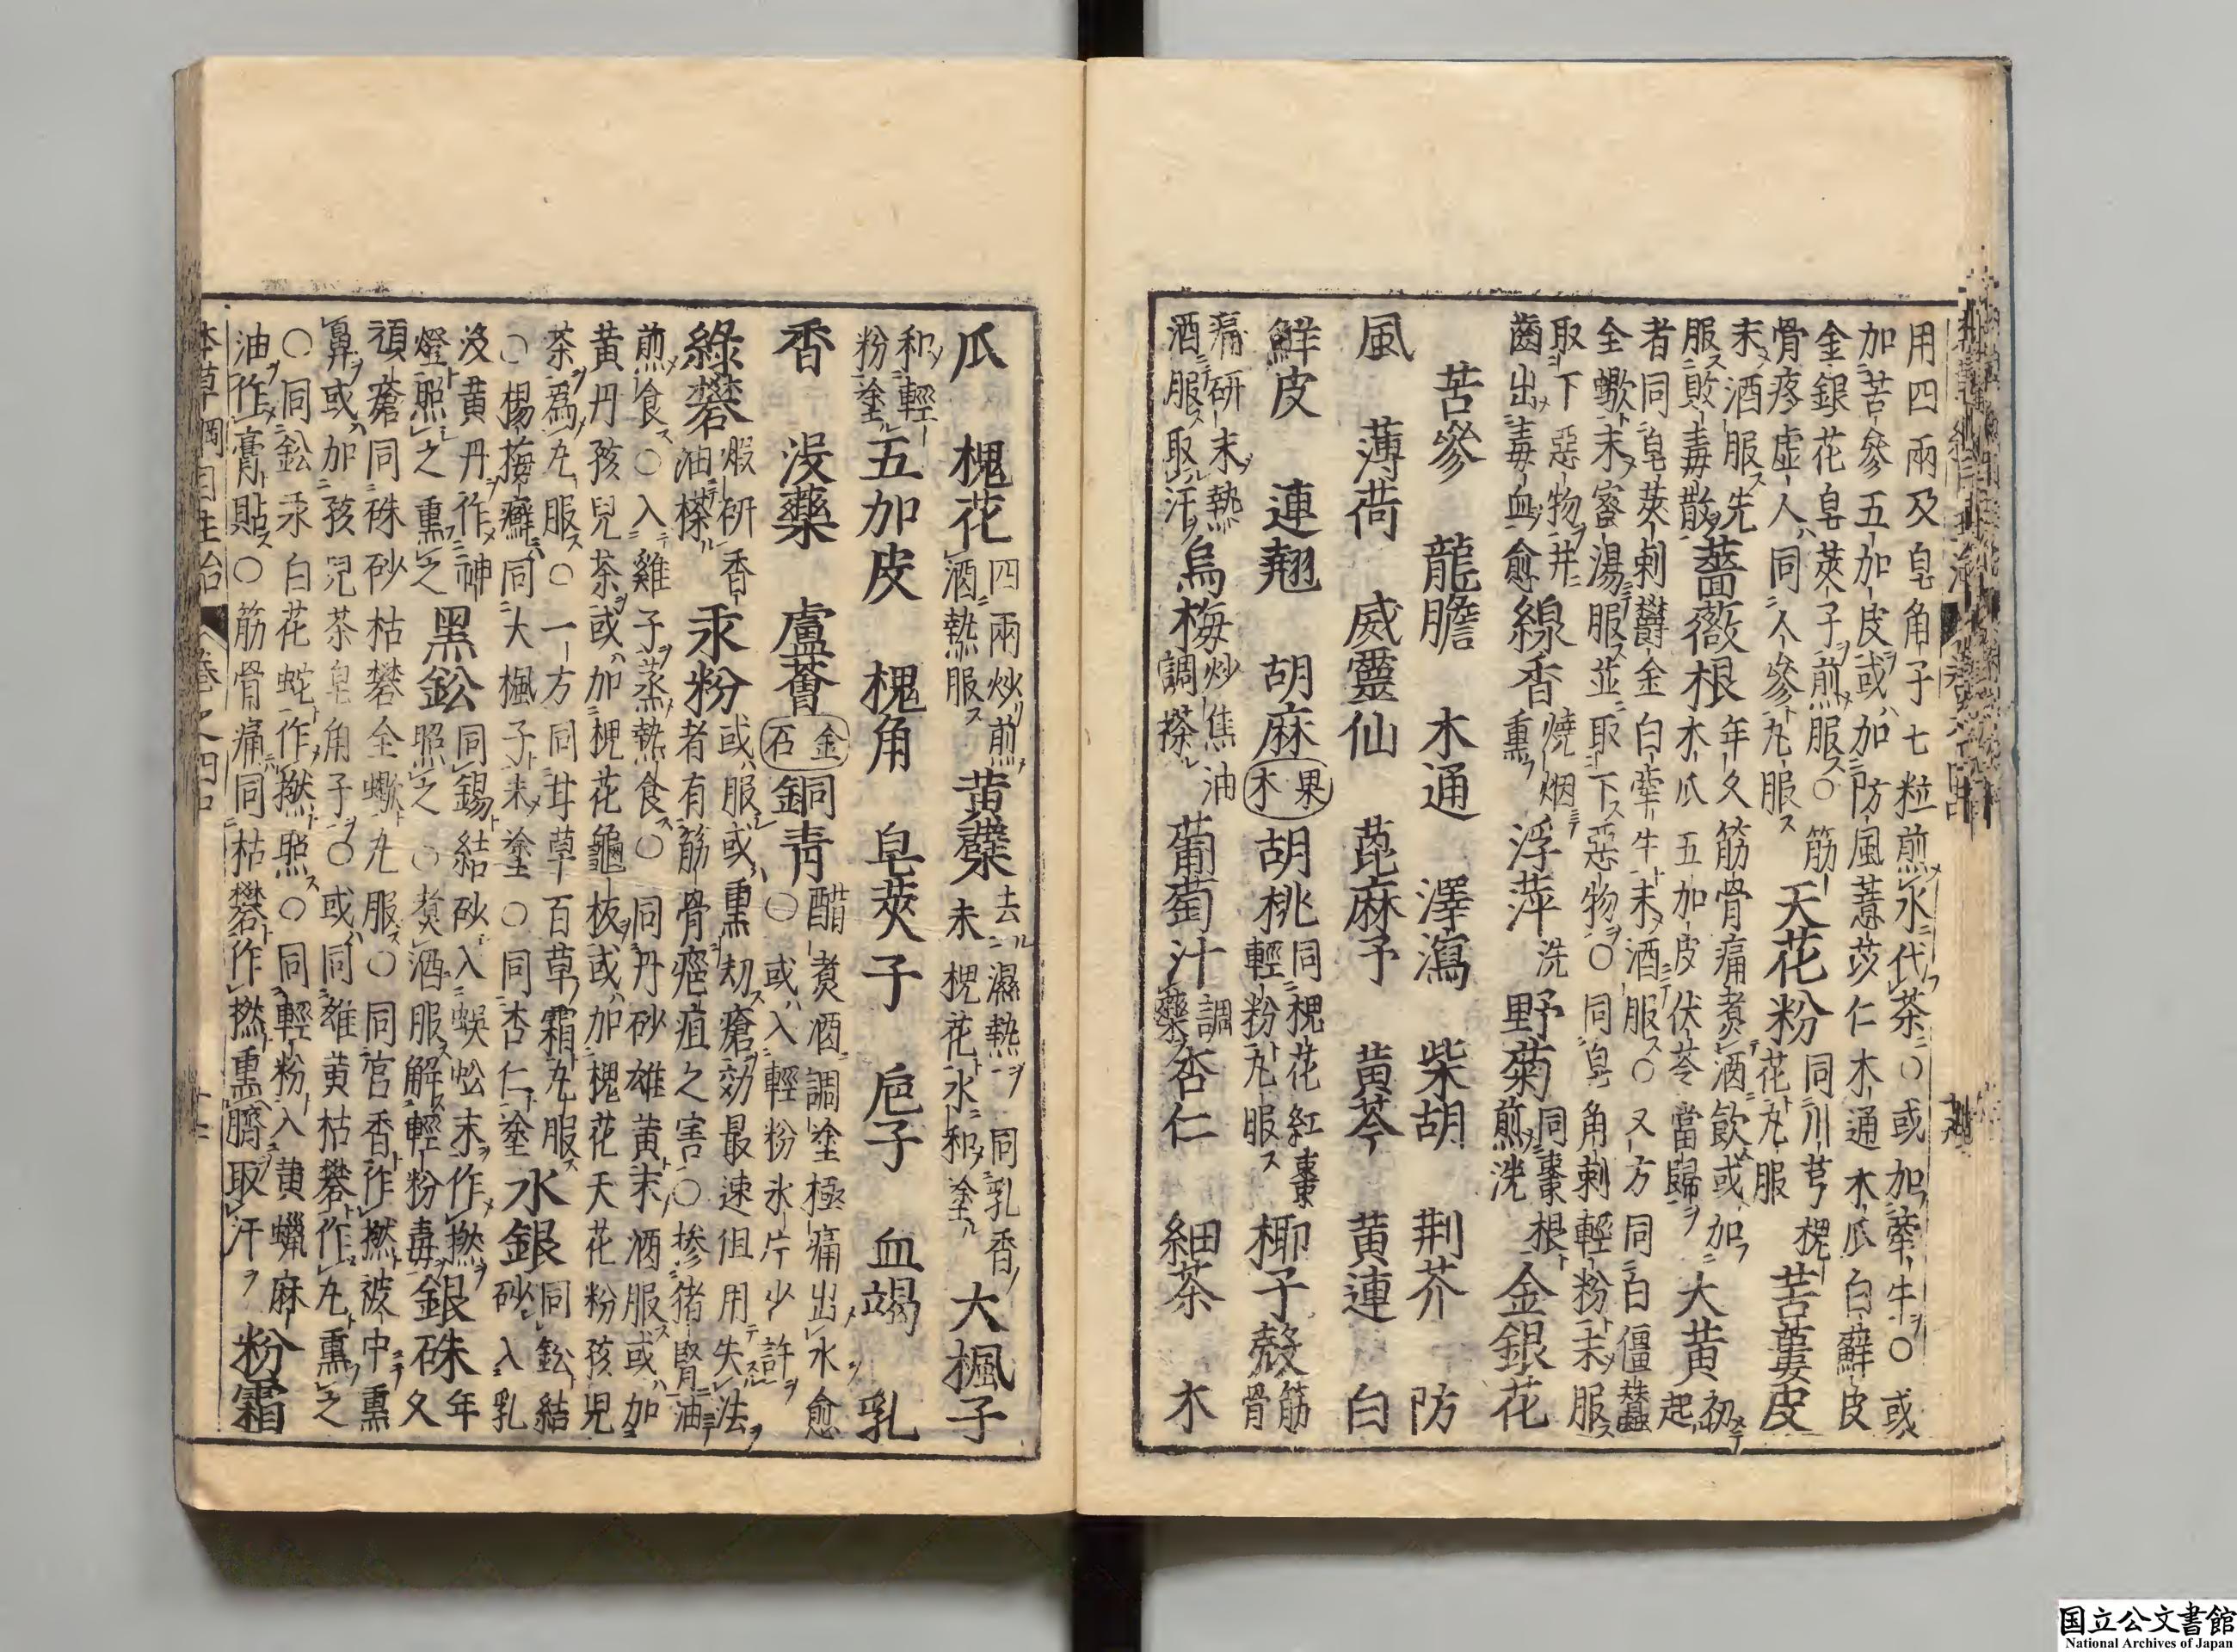 用四兩及皂角子七粒煎水代茶○或加牽牛○或
加苦參五加皮或加防風薏苡仁木通木瓜白蘚皮
金銀花皂莢子煎服○筋骨疼虛人同人參丸服 天花粉 同川芎槐花丸服 苦蔞皮
末酒服先服敗毒散 薔薇根 年久筋骨痛煮酒飲或加木瓜五加皮伏苓當歸 大黃 初起
者同皂莢刺欝金白牽牛末酒服○又方同白僵蠶
全蠍末蜜湯服並取下惡物○同皂角刺輕粉末服
取下惡物并齒出毒血愈 線香 燒烟熏 浮萍 洗 野菊 同棗根煎洗 金銀花
苦參 龍膽 木通 澤瀉 柴胡 荆芥 防
風 薄荷 威靈仙 萞麻子 黃芩 黃連 白
鮮皮 連翹 胡麻 果木 胡桃 同槐花紅棗輕粉丸服 椰子殼 筋骨
痛研末熱酒服取汗 烏梅 炒焦油調搽 葡萄汁 調藥 杏仁 細茶 木
瓜 槐花 四兩炒煎酒熱服 黃蘗 去濕熱同乳香末槐花水和塗 大楓子
和輕粉塗 五加皮 槐角 皂莢子 巵子 血竭 乳
香 沒藥 盧薈 金石 銅青 醋煑酒調塗極痛出水愈○或入輕粉氷片少許
綠礬 煅研香油搽 汞粉 或服或熏刼瘡効最速但用失法者有筋骨癰疽之害○摻猪腎油
煎食○入雞子蒸熟食○同丹砂雄黃末酒服或加
黃丹孩兒茶或加槐花龜板或加槐花天花粉孩兒
茶爲丸服○一方同甘草百草霜丸服○楊梅癬同大楓子末塗○同杏仁塗 水銀 同鉛結砂入乳
沒黃丹作神燈照之熏之 黑鈆 同錫結砂入蜈蚣末作撚照之○煑酒服解輕粉毒 銀硃 年久
頑瘡同硃砂枯礬全蠍丸服○同宮香作撚被中熏
鼻或加孩兒茶皂角子○或同雄黃枯礬作丸熏之
○同鈆汞白花蛇作撚照○同輕粉入黃蠟麻油作膏貼○筋骨痛同枯礬作撚熏臍取汗 粉霜
本草綱目主治 卷之四中 十二
国立公文書館
National Archives of Japan